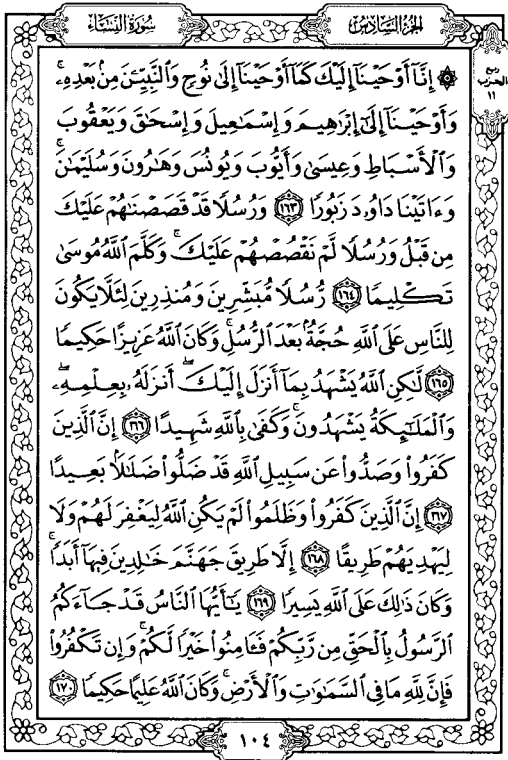 الجزء السادس
سورة النساء
ربع
الحزب
١١
۞ إِنَّآ أَوْحَيْنَآ إِلَيْكَ كَمَآ أَوْحَيْنَآ إِلَىٰ نُوحٍ وَٱلنَّبِيِّـۧنَ مِنۢ بَعْدِهِۦۚ
وَأَوْحَيْنَآ إِلَىٰٓ إِبْرَٰهِيمَ وَإِسْمَٰعِيلَ وَإِسْحَٰقَ وَيَعْقُوبَ
وَٱلْأَسْبَاطِ وَعِيسَىٰ وَأَيُّوبَ وَيُونُسَ وَهَٰرُونَ وَسُلَيْمَٰنَۚ
وَءَاتَيْنَا دَاوُۥدَ زَبُورًا ١٦٣ وَرُسُلًا قَدْ قَصَصْنَٰهُمْ عَلَيْكَ
مِن قَبْلُ وَرُسُلًا لَّمْ نَقْصُصْهُمْ عَلَيْكَۚ وَكَلَّمَ ٱللَّهُ مُوسَىٰ
تَكْلِيمًا ١٦٤ رُّسُلًا مُّبَشِّرِينَ وَمُنذِرِينَ لِئَلَّا يَكُونَ
لِلنَّاسِ عَلَى ٱللَّهِ حُجَّةٌۢ بَعْدَ ٱلرُّسُلِۚ وَكَانَ ٱللَّهُ عَزِيزًا حَكِيمًا
١٦٥ لَّٰكِنِ ٱللَّهُ يَشْهَدُ بِمَآ أَنزَلَ إِلَيْكَۖ أَنزَلَهُۥ بِعِلْمِهِۦۖ
وَٱلْمَلَٰٓئِكَةُ يَشْهَدُونَۚ وَكَفَىٰ بِٱللَّهِ شَهِيدًا ١٦٦ إِنَّ ٱلَّذِينَ
كَفَرُوا۟ وَصَدُّوا۟ عَن سَبِيلِ ٱللَّهِ قَدْ ضَلُّوا۟ ضَلَٰلًۢا بَعِيدًا
١٦٧ إِنَّ ٱلَّذِينَ كَفَرُوا۟ وَظَلَمُوا۟ لَمْ يَكُنِ ٱللَّهُ لِيَغْفِرَ لَهُمْ وَلَا
لِيَهْدِيَهُمْ طَرِيقًا ١٦٨ إِلَّا طَرِيقَ جَهَنَّمَ خَٰلِدِينَ فِيهَآ أَبَدًاۚ
وَكَانَ ذَٰلِكَ عَلَى ٱللَّهِ يَسِيرًا ١٦٩ يَٰٓأَيُّهَا ٱلنَّاسُ قَدْ جَآءَكُمُ
ٱلرَّسُولُ بِٱلْحَقِّ مِن رَّبِّكُمْ فَـَٔامِنُوا۟ خَيْرًا لَّكُمْۚ وَإِن تَكْفُرُوا۟
فَإِنَّ لِلَّهِ مَا فِى ٱلسَّمَٰوَٰتِ وَٱلْأَرْضِۚ وَكَانَ ٱللَّهُ عَلِيمًا حَكِيمًا ١٧٠
١٠٤